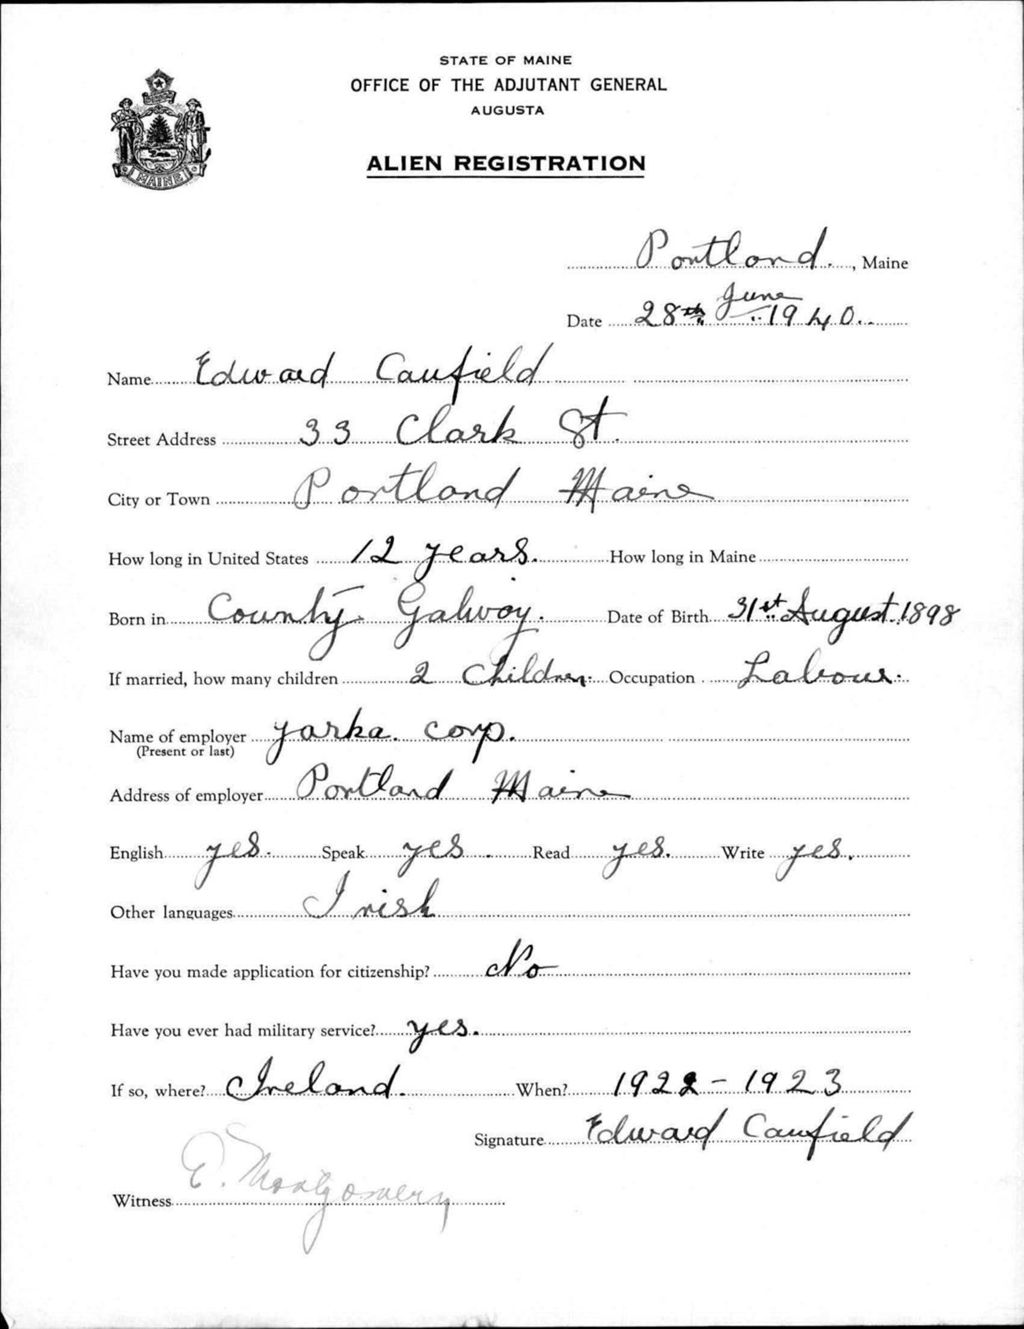 STATE OF MAINE
OFFICE OF THE ADJUTANT GENERAL
AUGUSTA
ALIEN REGISTRATION
MAINE
Portland, Maine
Date 28th June 1940
Name Edward Caufield
Street Address 33 Clark St.
City or Town Portland Maine
How long in United States 12 years. How long in Maine
Born in County Galway. Date of Birth 31st August 1898
If married, how many children 2 Children Occupation Labour.
Name of employer yarka. corp.
(Present or last)
Address of employer Portland Maine
English yes. Speak yes. Read yes. Write yes.
Other languages Irish
Have you made application for citizenship? No
Have you ever had military service? yes.
If so, where? Ireland. When? 1922 - 1923
Signature Edward Caufield
Witness E. Montgomery